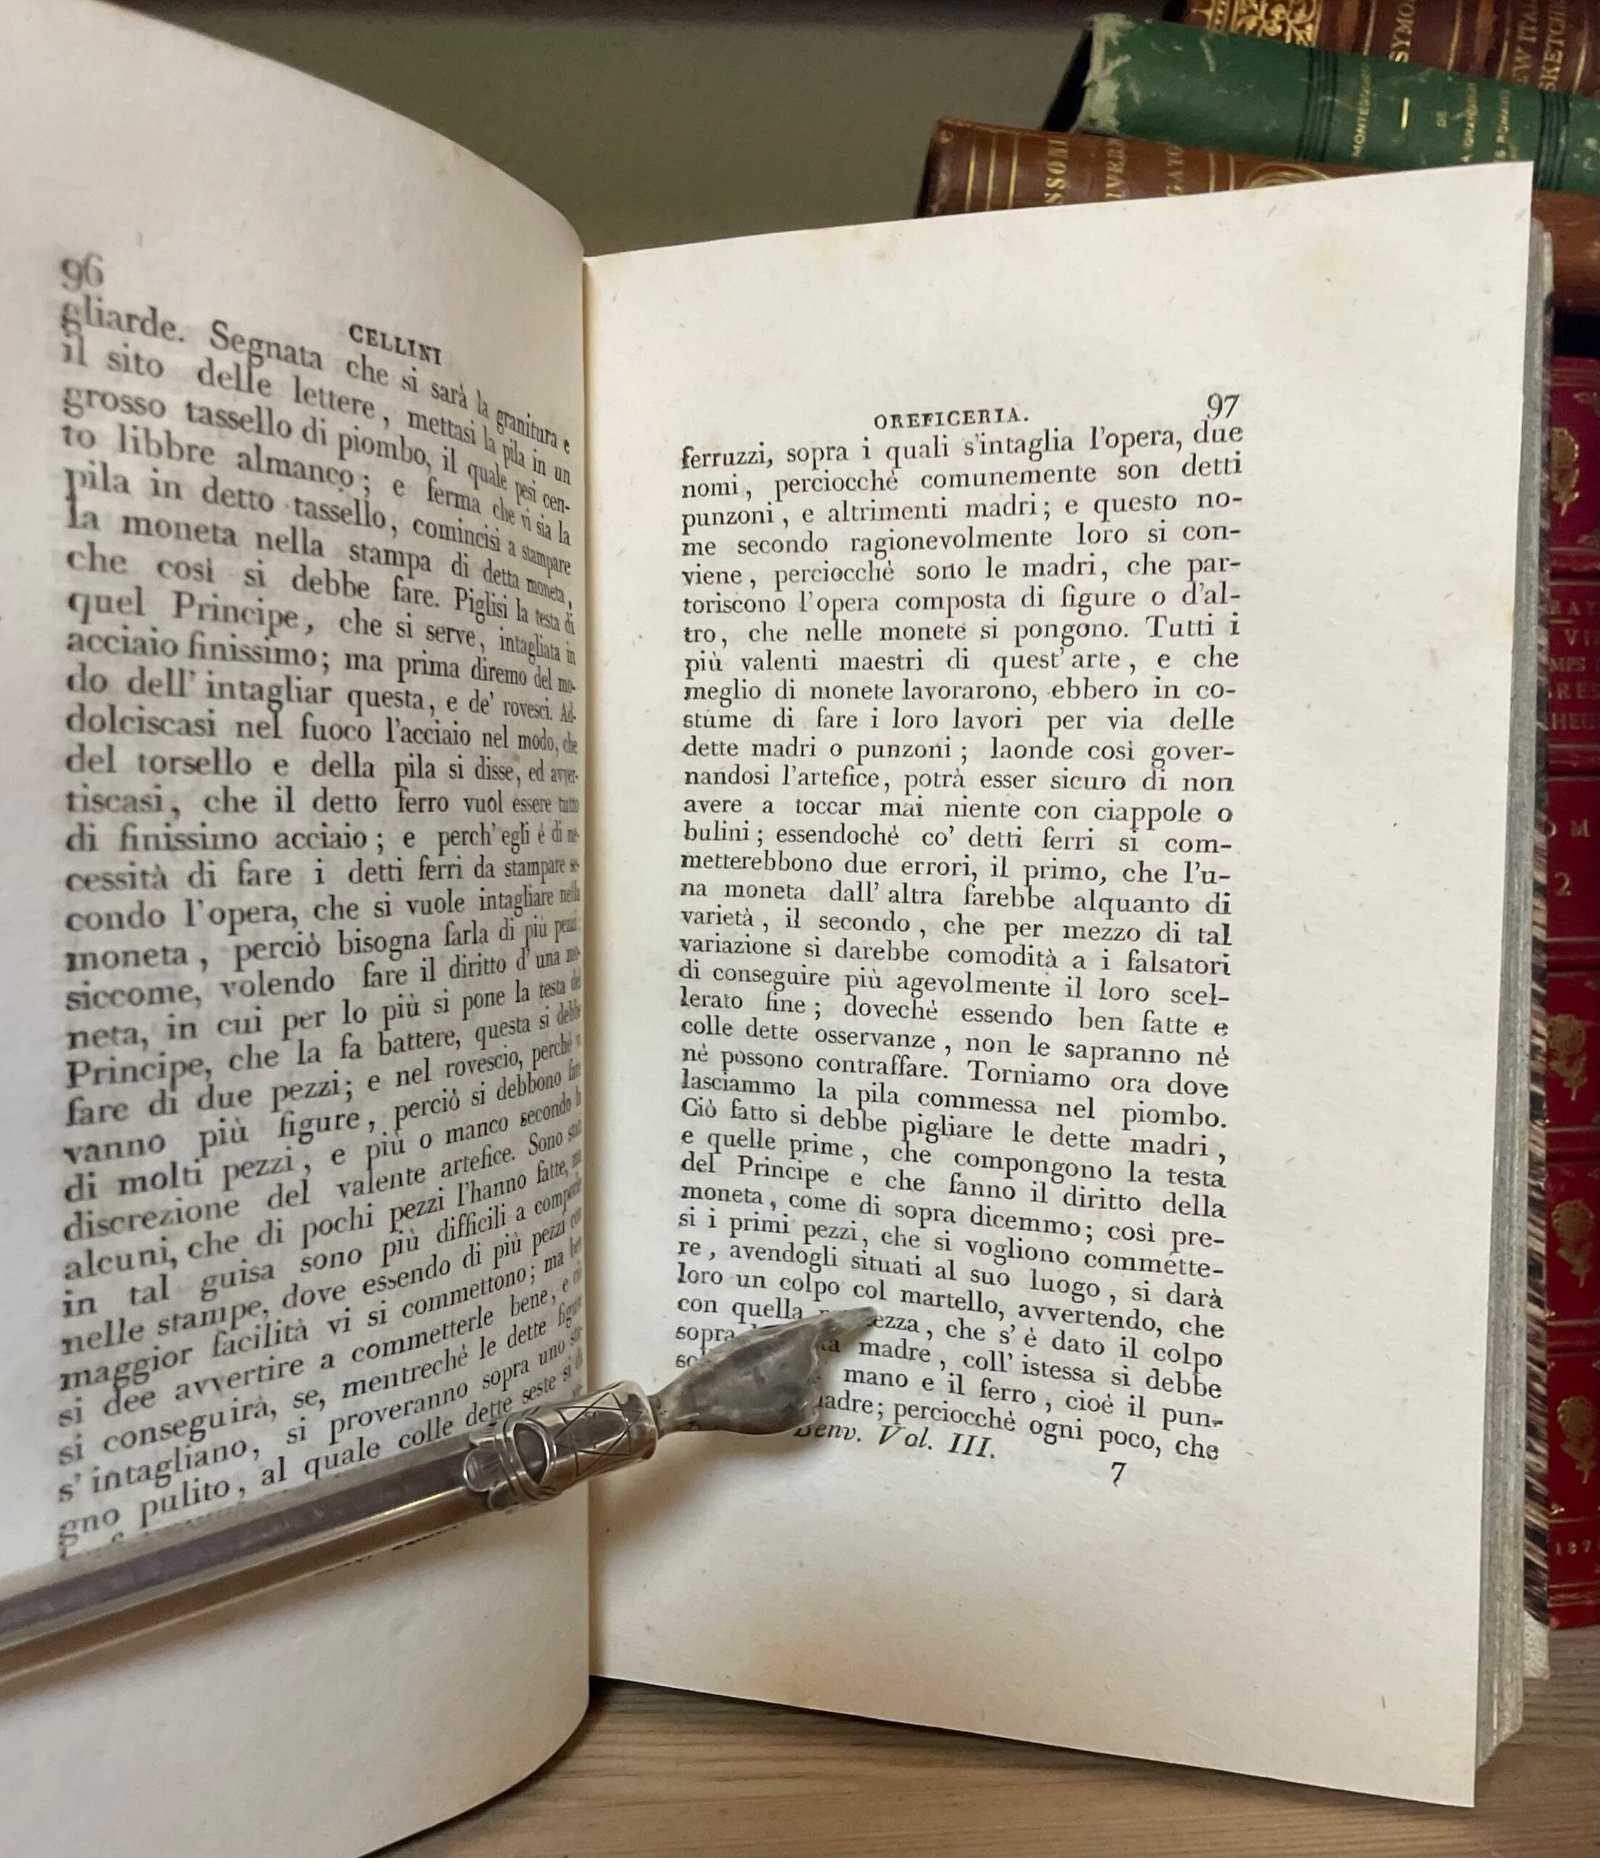 96
CELLINI
gliarde. Segnata che si sarà la granitura e
il sito delle lettere, mettasi la pila in un
grosso tassello di piombo, il quale pesi cen-
to libbre almanco; e ferma che vi sia la
pila in detto tassello, comincisi a stampare
la moneta nella stampa di detta moneta,
che così si debbe fare. Piglisi la testa di
quel Principe, che si serve, intagliata in
acciaio finissimo; ma prima diremo del mo-
do dell'intagliar questa, e de' rovesci. Ad-
dolciscasi nel fuoco l'acciaio nel modo, che
del torsello e della pila si disse, ed avver-
tiscasi, che il detto ferro vuol essere tutto
di finissimo acciaio; e perch'egli è di ne-
cessità di fare i detti ferri da stampare se-
condo l'opera, che si vuole intagliare nella
moneta, perciò bisogna farla di più pezzi:
siccome, volendo fare il diritto d'una mo-
neta, in cui per lo più si pone la testa del
Principe, che la fa battere, questa si debbe
fare di due pezzi; e nel rovescio, perchè vi
vanno più figure, perciò si debbono fare
di molti pezzi, e più o manco secondo la
discrezione del valente artefice. Sono stati
alcuni, che di pochi pezzi l'hanno fatte, ma
in tal guisa sono più difficili a comporle
nelle stampe, dove essendo di più pezzi con
maggior facilità vi si commettono; ma ben
si dee avvertire a commetterle bene, e ciò
si conseguirà, se, mentrechè le dette figure
s'intagliano, si proveranno sopra uno
gno pulito, al quale colle dette seste si
OREFICERIA.
97
ferruzzi, sopra i quali s'intaglia l'opera, due
nomi, perciocchè comunemente son detti
punzoni, e altrimenti madri; e questo no-
me secondo ragionevolmente loro si con-
viene, perciocchè sono le madri, che par-
toriscono l'opera composta di figure o d'al-
tro, che nelle monete si pongono. Tutti i
più valenti maestri di quest'arte, e che
meglio di monete lavorarono, ebbero in co-
stume di fare i loro lavori per via delle
dette madri o punzoni; laonde così gover-
nandosi l'artefice, potrà esser sicuro di non
avere a toccar mai niente con ciappole o
bulini; essendochè co' detti ferri si com-
metterebbono due errori, il primo, che l'u-
na moneta dall'altra farebbe alquanto di
varietà, il secondo, che per mezzo di tal
variazione si darebbe comodità a i falsatori
di conseguire più agevolmente il loro scel-
lerato fine; dovechè essendo ben fatte e
colle dette osservanze, non le sapranno nè
nè possono contraffare. Torniamo ora dove
lasciammo la pila commessa nel piombo.
Ciò fatto si debbe pigliare le dette madri,
e quelle prime, che compongono la testa
del Principe e che fanno il diritto della
moneta, come di sopra dicemmo; così pre-
si i primi pezzi, che si vogliono commette-
re, avendogli situati al suo luogo, si darà
loro un colpo col martello, avvertendo, che
con quella che s'è dato il colpo
sopra madre, coll'istessa si debbe
mano e il ferro, cioè il pun-
madre; perciocchè ogni poco, che
Benv. Vol. III.
7
SYMO
EW ITAL
SKETCHE
MONTESQUIEU
DE